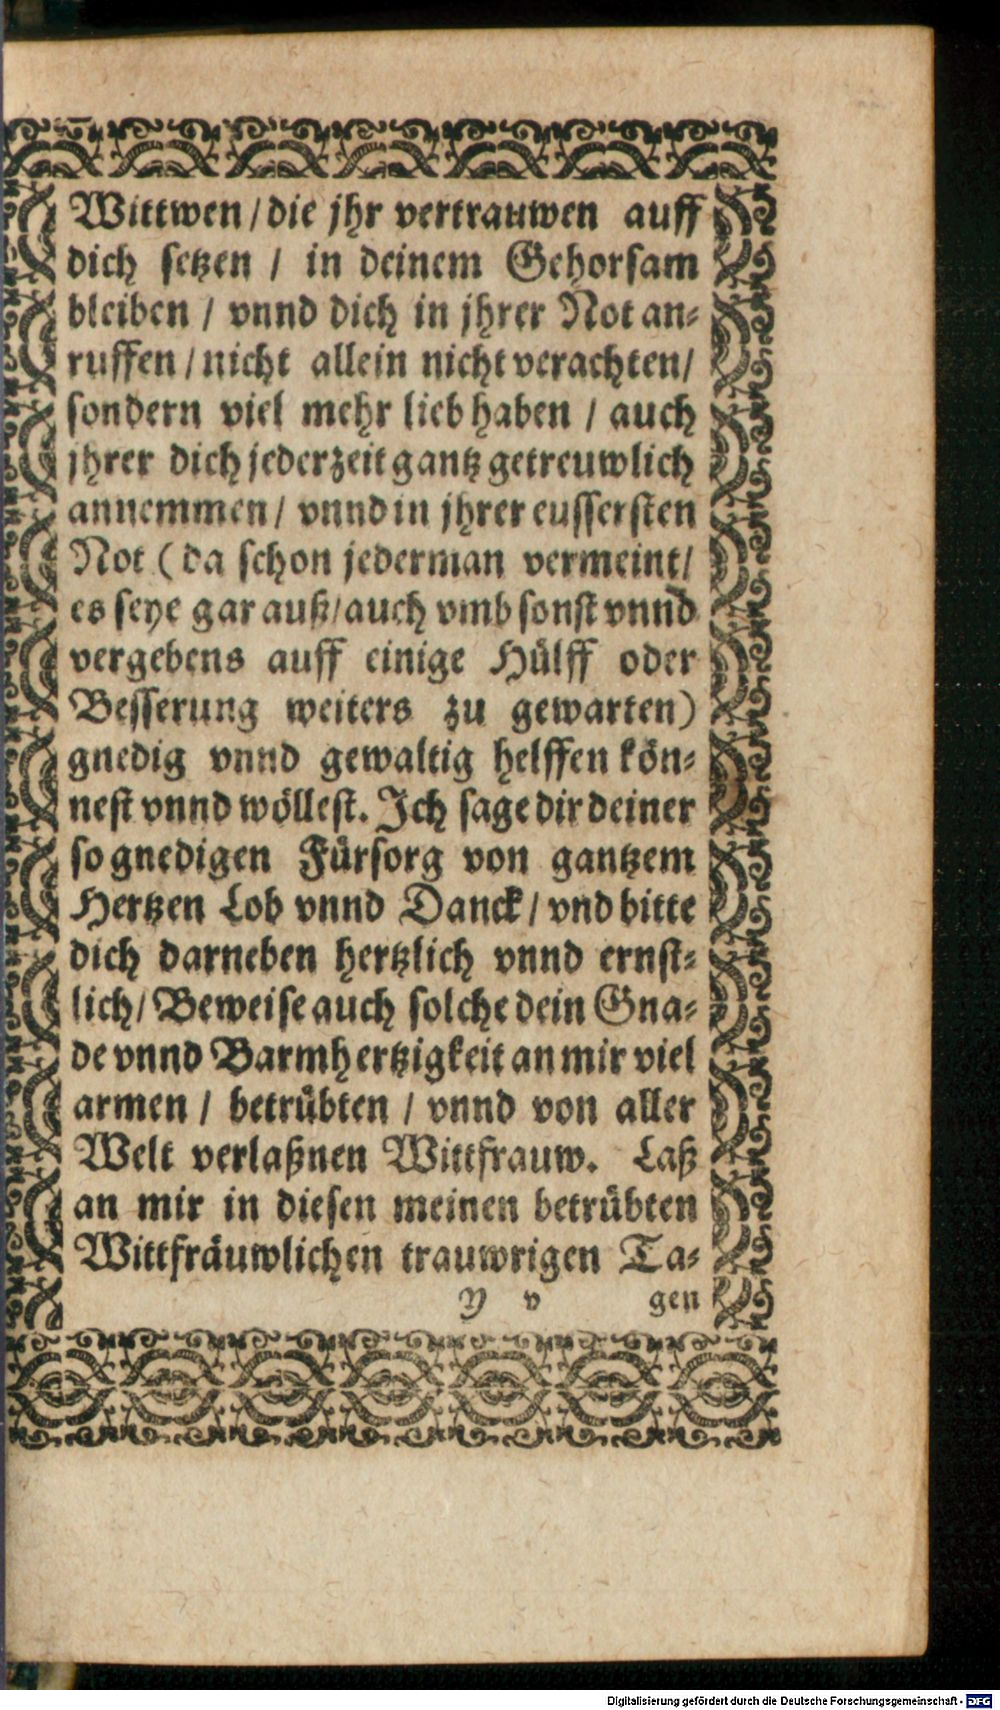 Wittwen / die jhr vertrauwen auff
dich setzen / in deinem Gehorsam
bleiben / vnnd dich in jhrer Not an-
ruffen / nicht allein nicht verachten /
sondern viel mehr lieb haben / auch
jhrer dich jederzeit gantz getreuwlich
annemmen / vnnd in jhrer eussersten
Not (da schon jederman vermeint /
es seye gar auß / auch vmb sonst vnnd
vergebens auff einige Hülff oder
Besserung weiters zu gewarten)
gnedig vnnd gewaltig helffen kön-
nest vnnd wöllest. Ich sage dir deiner
so gnedigen Fürsorg von gantzem
Hertzen Lob vnnd Danck / vnd bitte
dich darneben hertzlich vnnd ernst-
lich / Beweise auch solche dein Gna-
de vnnd Barmhertzigkeit an mir viel
armen / betrübten / vnnd von aller
Welt verlaßnen Wittfrauw. Laß
an mir in diesen meinen betrübten
Wittfräuwlichen trauwrigen Ta-
Y v gen
Digitalisierung gefördert durch die Deutsche Forschungsgemeinschaft - DFG